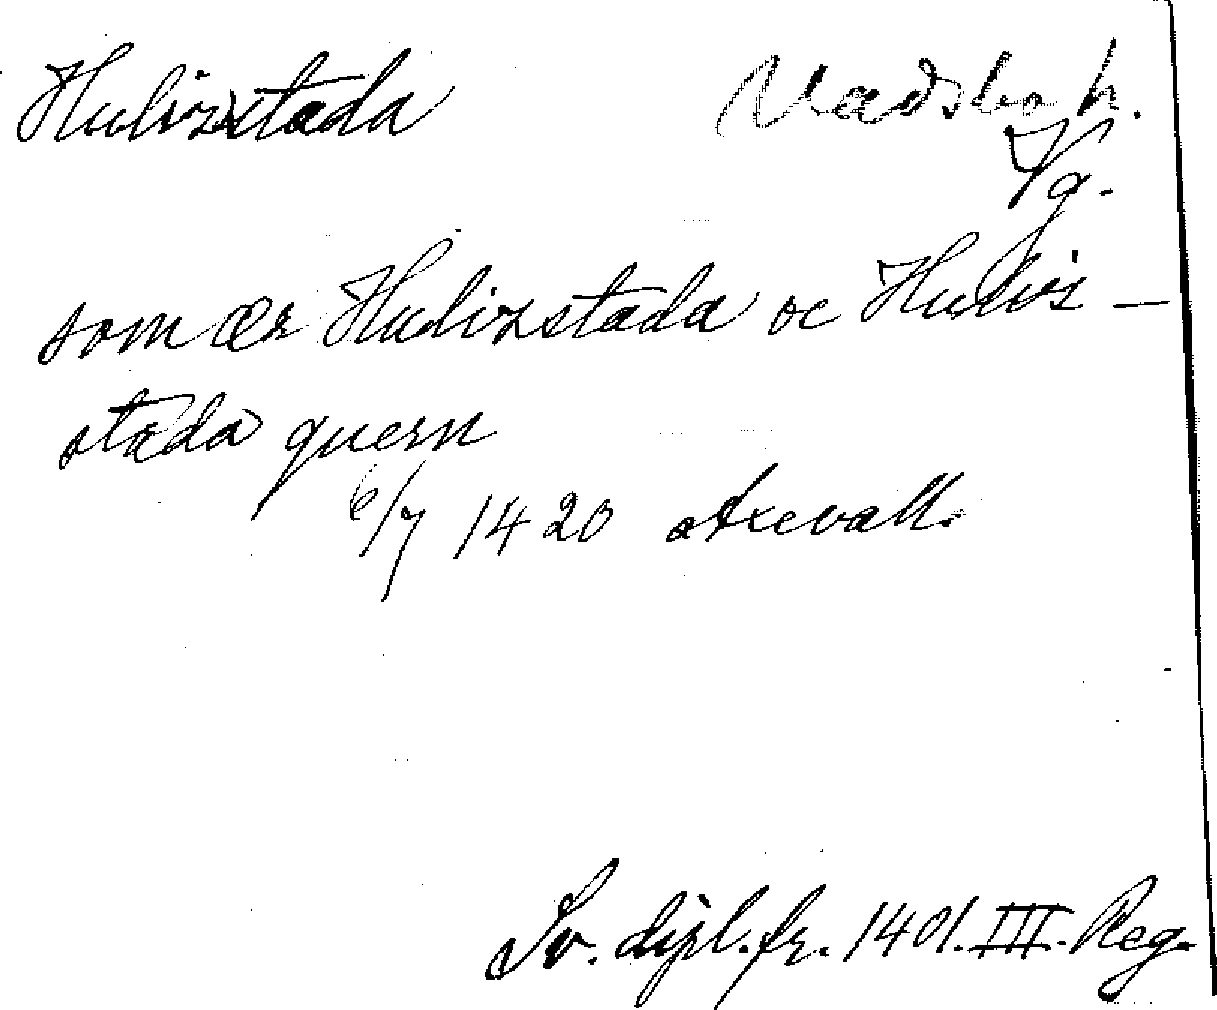 Hulizstada Vadsbo h.
Vg.
som ær Hulizstada oc Hulis-
stada quern
6/7 1420 Axevall.
Sv. dipl. fr. 1401. III. Reg.